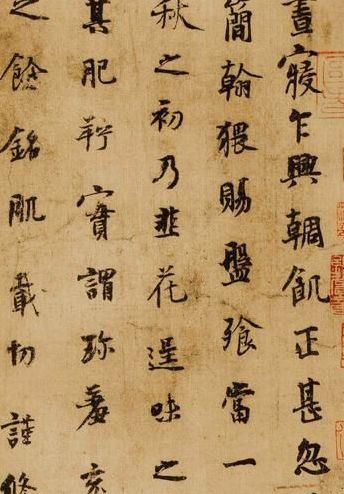 晝寢乍興輖飢正甚忽
簡翰猥賜盤飧當一
秋之初乃韭花逞味之
其肥羜實謂珍羞充
之餘銘肌載切謹修